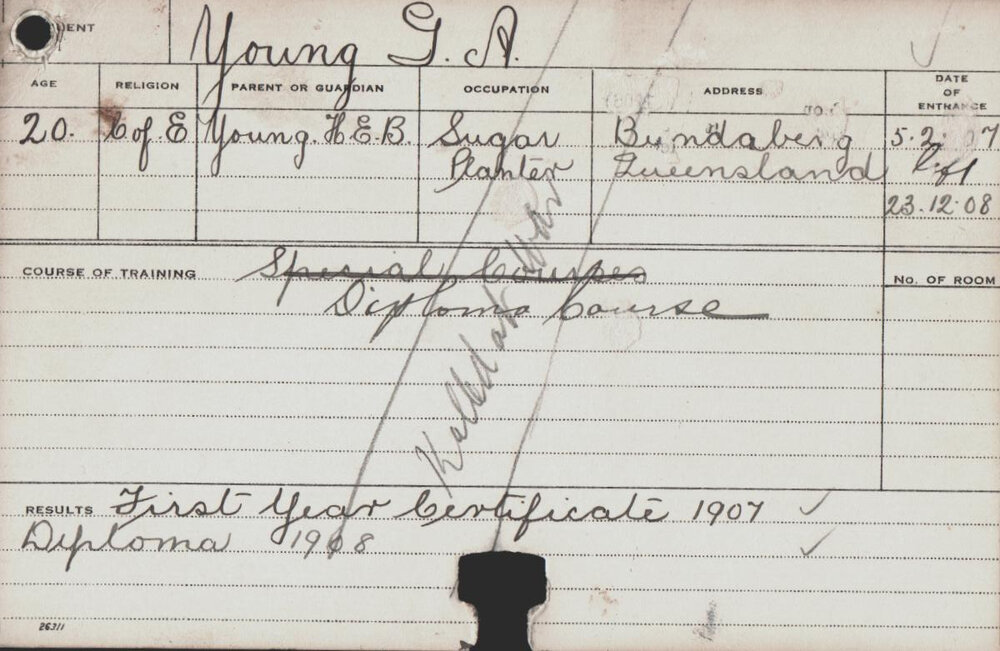 Young G. A.
AGE RELIGION PARENT OR GUARDIAN OCCUPATION ADDRESS DATE OF ENTRANCE
20. C of E Young. H.E.B. Sugar Bundaberg 5.2.07
Planter Queensland Left
23.12.08
COURSE OF TRAINING Special Courses No. OF ROOM
Diploma Course
Killed at War
RESULTS First Year Certificate 1907
Diploma 1908
26311